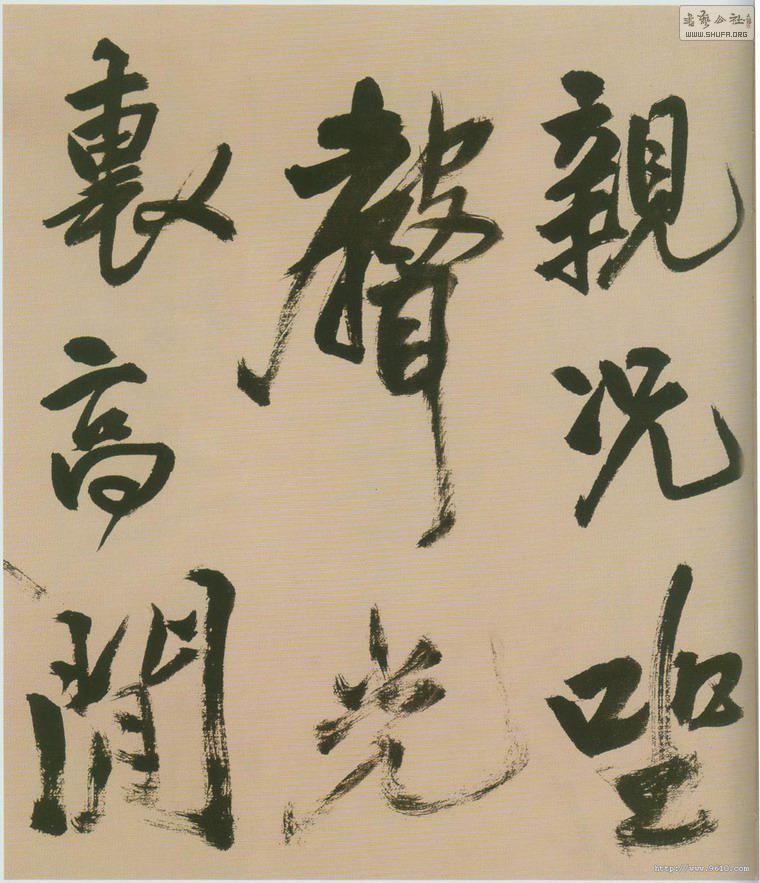 親況坐
聲光
裏高閒
书艺公社
WWW.SHUFA.ORG
http://www.9610.com